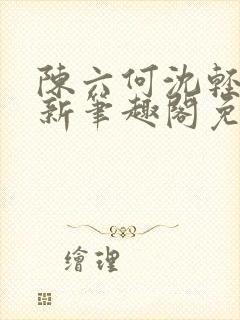 陳六何沈輕
新筆趣閣免
繪理